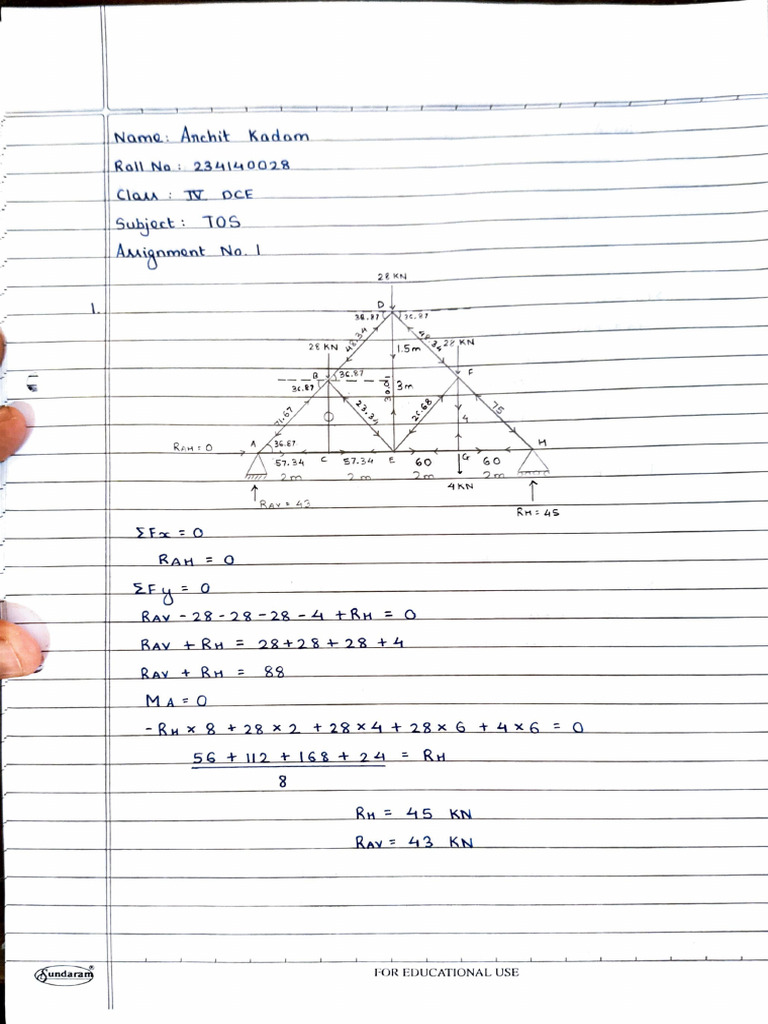 Name: Archit Kadam
Roll No : 234140028
Class : IV DCE
Subject : TOS
Assignment No. 1
1.
28 KN
D
36.87 36.87
48.34 48.34
28 KN 1.5m 28 KN
B 36.87 F
36.87 3m
30.01
71.67 23.34 26.68 4 75
RAH = 0 A 36.87 H
57.34 C 57.34 E 60 G 60
2m 2m 2m 2m
4KN
RAV = 43 RH = 45
ΣFx = 0
RAH = 0
ΣFy = 0
RAV - 28 - 28 - 28 - 4 + RH = 0
RAV + RH = 28 + 28 + 28 + 4
RAV + RH = 88
MA = 0
-RH × 8 + 28 × 2 + 28 × 4 + 28 × 6 + 4 × 6 = 0
56 + 112 + 168 + 24 = RH
8
RH = 45 KN
RAV = 43 KN
Sundaram®
FOR EDUCATIONAL USE